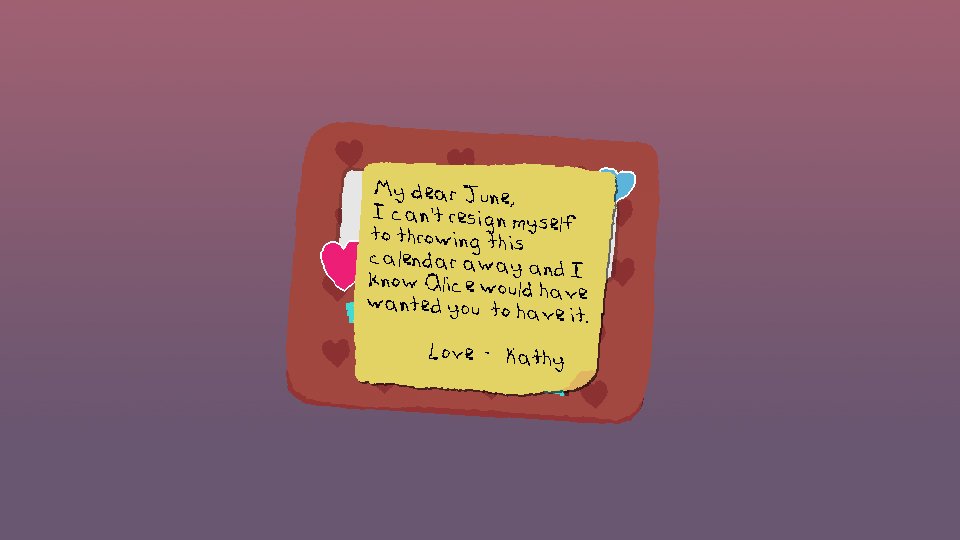 My dear June,
I can't resign myself
to throwing this
calendar away and I
know Alice would have
wanted you to have it.
Love - Kathy